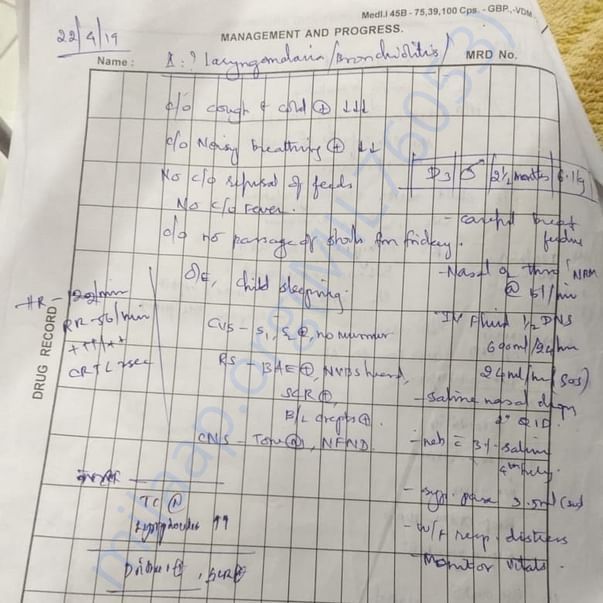 Medl.I 45B - 75,39,100 Cps. - GBP.,-VDM
MANAGEMENT AND PROGRESS.
22/4/19
Name :
Δ : ? Laryngomalacia/Bronchiolitis/
MRD No.
c/o cough & cold ⊕ ↓↓↓
c/o Noisy breathing ⊕ ↓↓
No c/o refusal of feeds
D3 | 2½ months | 6.1kg
No c/o Fever.
- careful breast feeding
c/o no passage of stools from friday.
O/E, child sleeping.
NRM
@ 5l/min
HR - 122/min
RR-56/min
CRT < 2sec
DRUG RECORD
CVS - S1, S2 ⊕, no murmur
IV Fluid ½ DNS
600ml/24hr
24ml/hr (sos)
RS - BAE ⊕, NVBS heard,
SCR ⊕,
B/L crepts ⊕.
- Saline nasal drops
2° QID.
CNS - Tone, NFND
- neb c̄ 3% saline
4th hrly.
- syp. para 2.5ml (sos)
TC
Lymphocytes ↑↑
- W/f resp. distress
- Monitor vitals.
milaap.org@MIL76053